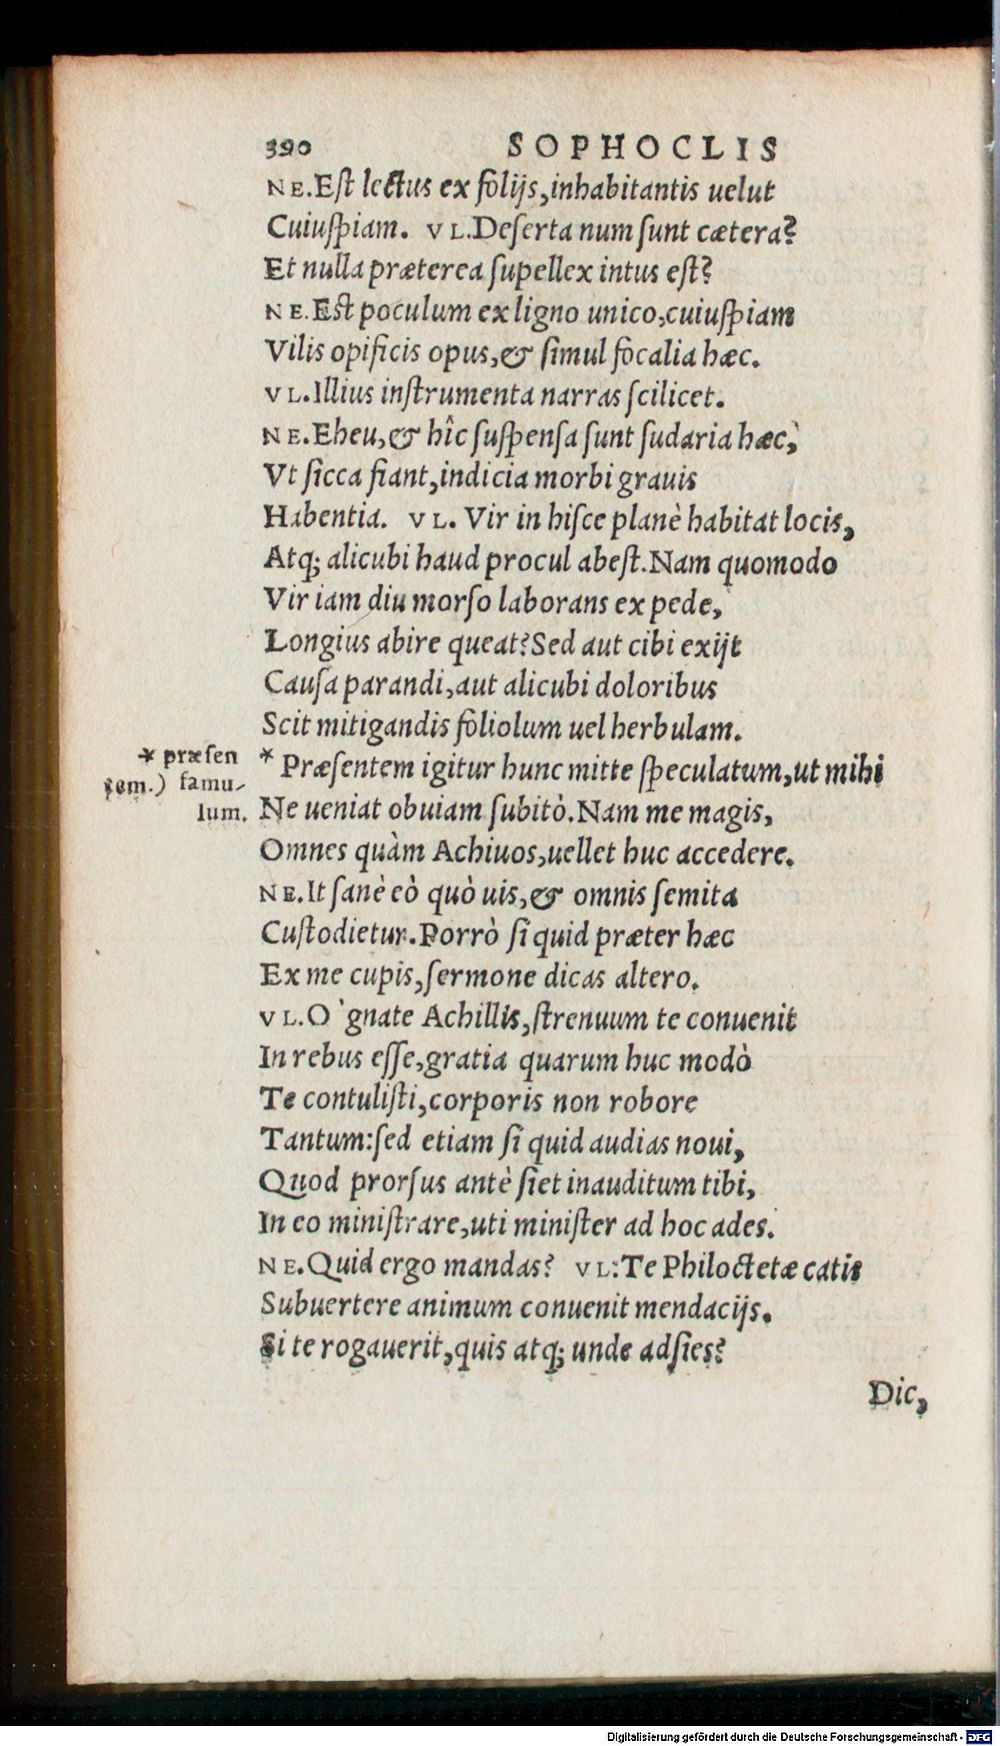 390 SOPHOCLIS
NE.Eſt lectus ex folijs,inhabitantis uelut
Cuiuſpiam. VL.Deſerta num ſunt cætera?
Et nulla præterea ſupellex intus eſt?
NE.Eſt poculum ex ligno unico,cuiuſpiam
Vilis opificis opus,& ſimul focalia hæc.
VL.Illius inſtrumenta narras ſcilicet.
NE.Eheu,& hîc ſuſpenſa ſunt ſudaria hæc,
Vt ſicca fiant,indicia morbi grauis
Habentia. VL. Vir in hiſce planè habitat locis,
Atq; alicubi haud procul abeſt.Nam quomodo
Vir iam diu morſo laborans ex pede,
Longius abire queat?Sed aut cibi exijt
Cauſa parandi,aut alicubi doloribus
Scit mitigandis foliolum uel herbulam.
* Præſentem igitur hunc mitte ſpeculatum,ut mihi
* præſen
tem.) famu-
lum.
Ne ueniat obuiam ſubitò.Nam me magis,
Omnes quàm Achiuos,uellet huc accedere.
NE.It ſanè eò quò uis,& omnis ſemita
Cuſtodietur.Porrò ſi quid præter hæc
Ex me cupis,ſermone dicas altero.
VL.O `gnate Achillis,ſtrenuum te conuenit
In rebus eſſe,gratia quarum huc modò
Te contuliſti,corporis non robore
Tantum:ſed etiam ſi quid audias noui,
Quod prorſus antè ſiet inauditum tibi,
In eo miniſtrare,uti miniſter ad hoc ades.
NE.Quid ergo mandas? VL:Te Philoctetæ catis
Subuertere animum conuenit mendacijs.
Si te rogauerit,quis atq; unde adſies?
Dic,
Digitalisierung gefördert durch die Deutsche Forschungsgemeinschaft - DFG